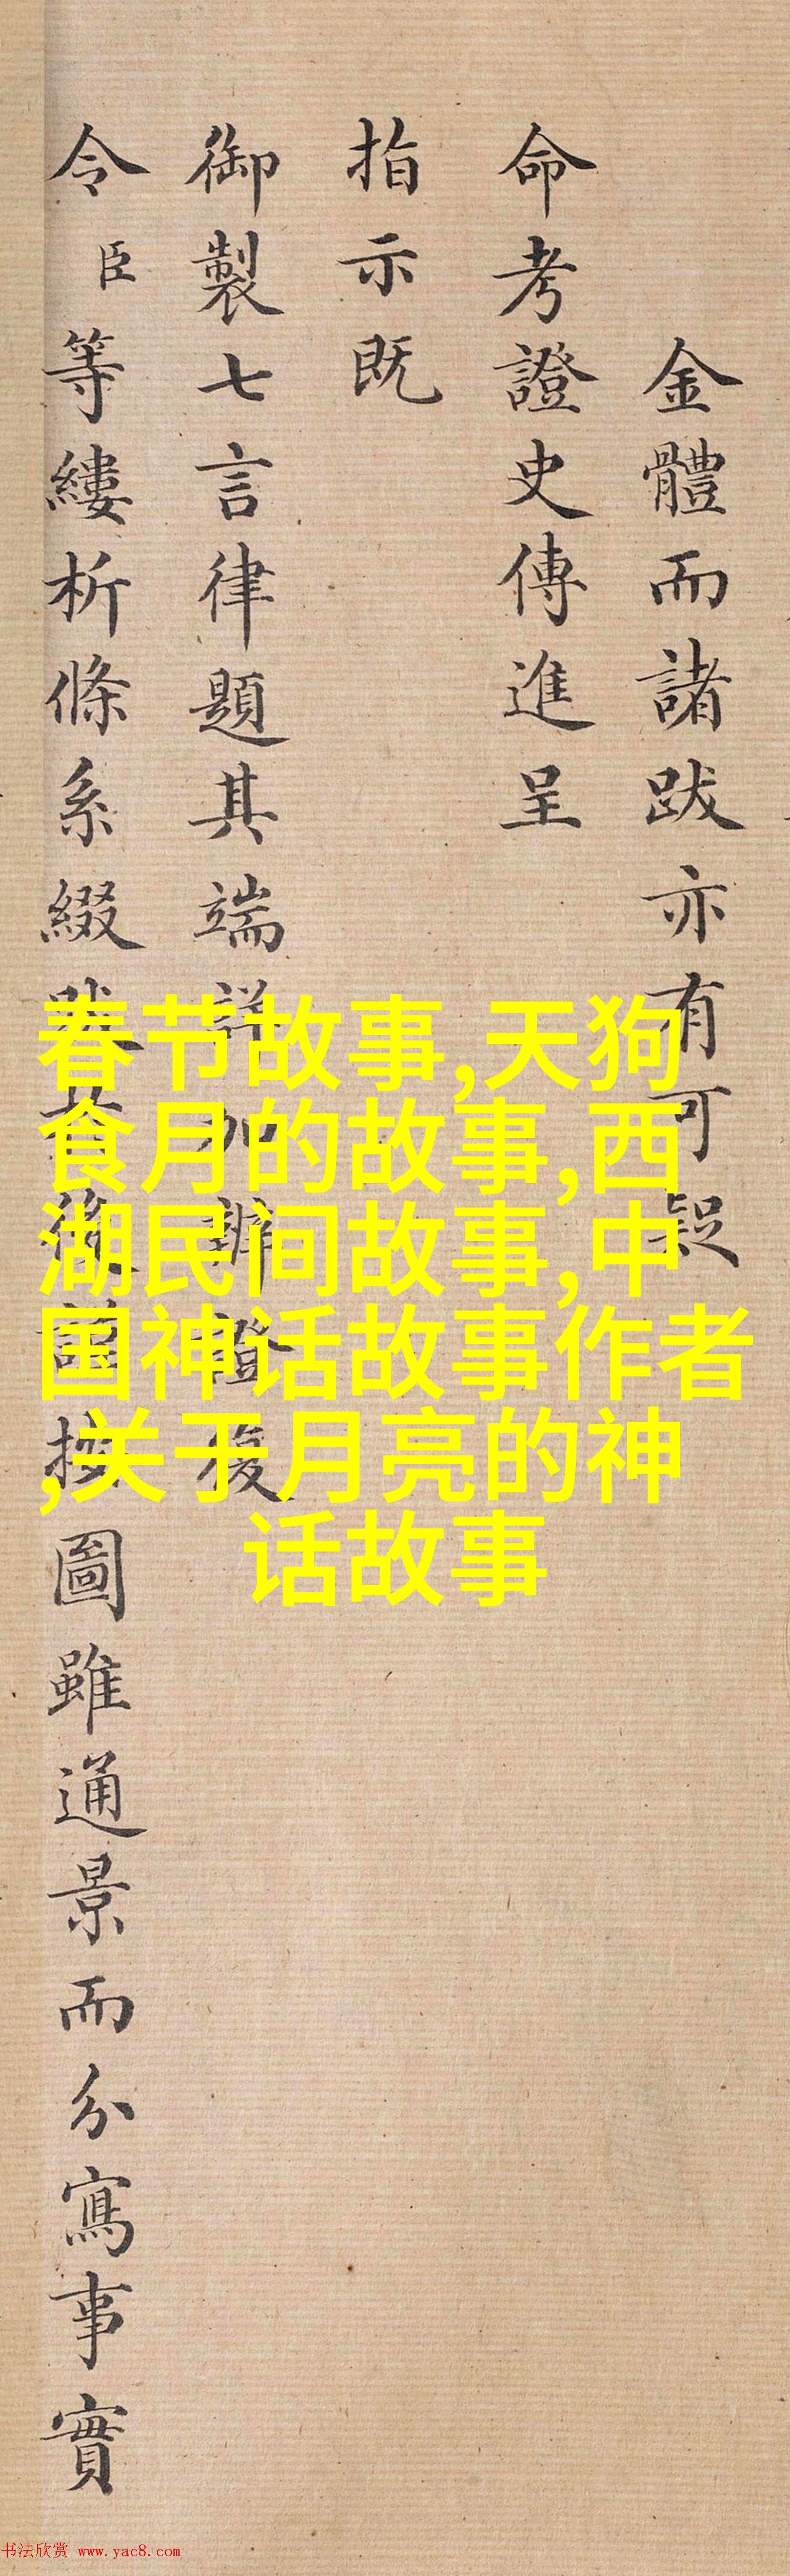 金體而諸跋亦有可疑
命考證史傳進呈
指示既
御製七言律題其端詳加辨證復
令臣等縷析條系綴跋於後謹按圖雖通景而分寫事實
春节故事,天狗
食月的故事,西
湖民间故事,中
国神话故事作者
,关于月亮的神
话故事
书法欣赏 www.yac8.com